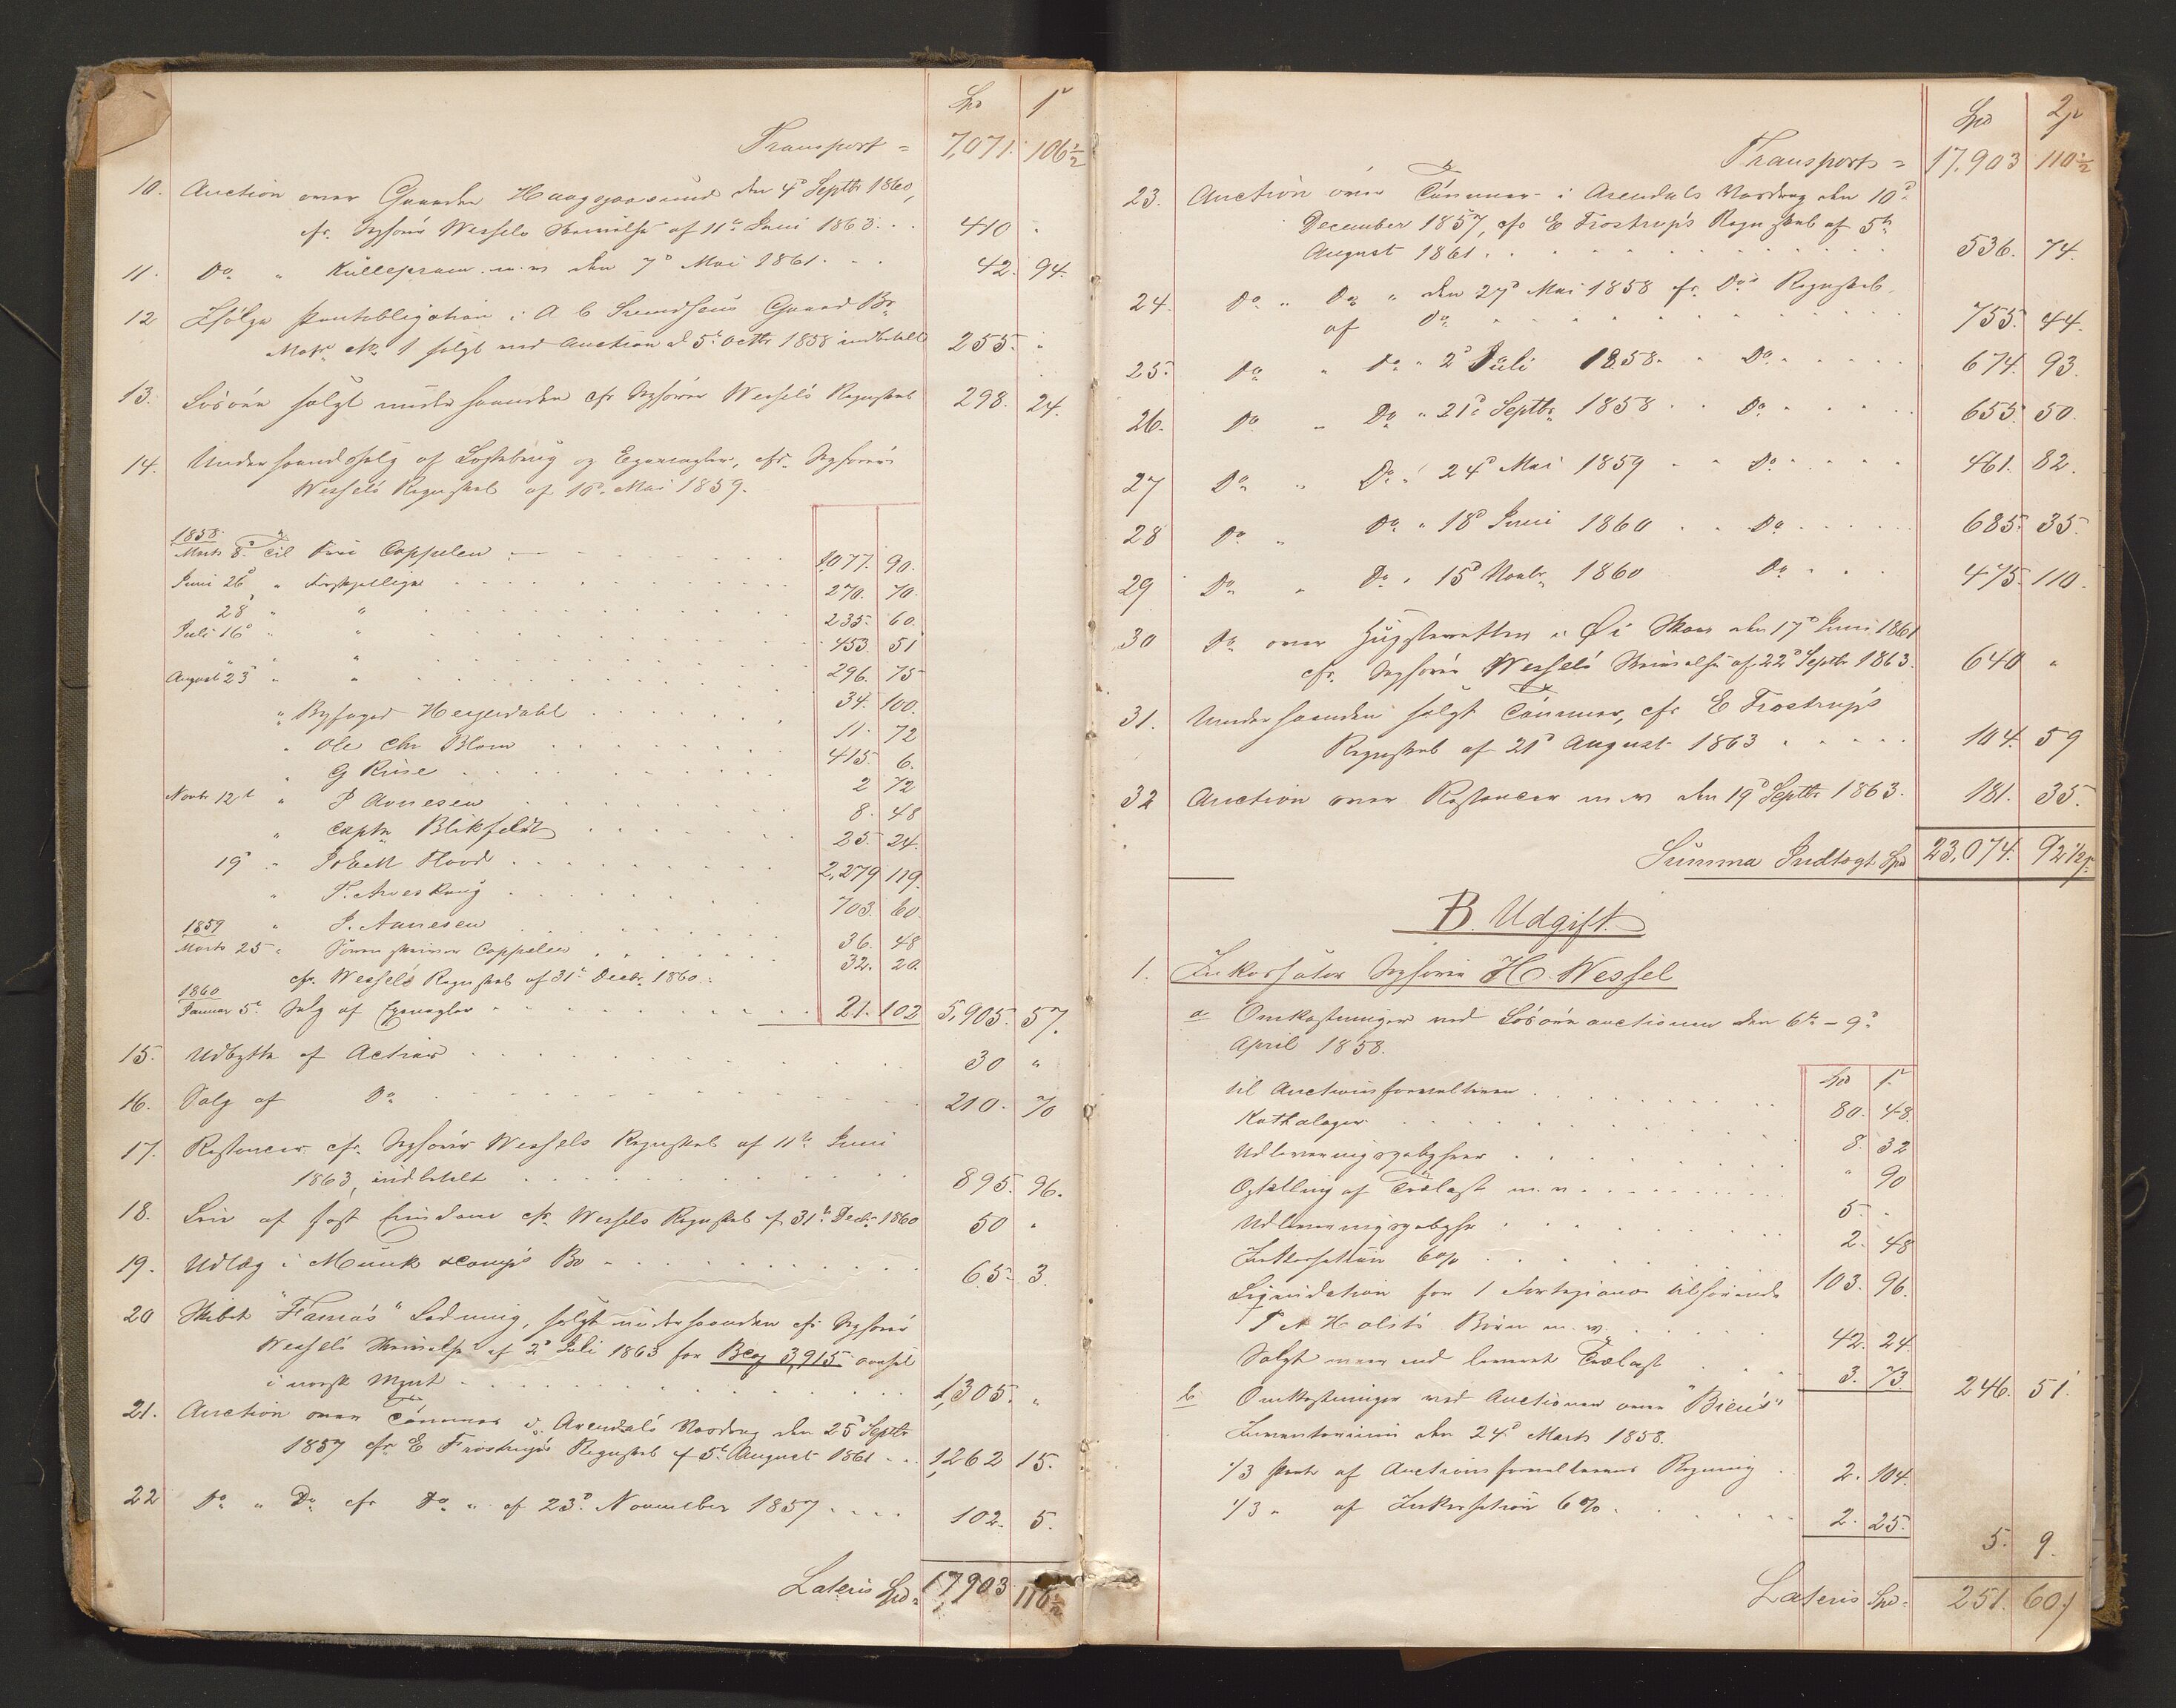 Spd ſ
Transport = 7,071. 106½
10. Auction over Gaarden Haagsjaasund den 4d Septbr 1860,
cfr. Sagförer Wessels Skrivelse af 11te Juni 1863 . . 410 "
11. Do " Kullepram m.v. den 7d Mai 1861 . . . 42. 94.
12 Ifölge Pantobligation i A C Svendsens Gaard Br
Matr. No 1 solgt ved Auction d 5te Octbr 1858 indbetalt 255. "
13. Lösöre solgt underhaanden cfr Sagförer Wessels Regnskab 298. 24.
14. Underhaandssalg af og Egenagler, cfr. Sagförer
Wessels Regnskab af 10d Mai 1859.
1858
Marts 8d Til Coppelen . . . 1,077. 90.
Juni 26d " Forskjellige . . . 270. 70.
28 " " . . . 235. 60.
Juli 16d " " . . . 453. 51
August 23 " " . . . 296. 75
" Byfoged Heyerdahl . . . 34. 100.
" Ole Chr Blom . . . 11. 72
" G Riise . . . 415. 6.
Novbr 12t " P Aanesen . . . 2 72
" Captn Blikfeldt . . . 8. 48
19d " Flood . . . 25. 24.
" T. Aveskoug . . . 2,279 119.
1859 " J. Aanesen . . . 703. 60.
Marts 25 " Sorenskriver Coppelen . . . 36. 48
cfr. Wessels Regnskab af 31te Decbr. 1860. 32. 20.
1860
Januar 5t Salg af Egenagler . . . 21. 102 5,905. 57.
15. Udbytte af Actier . . . 30 "
16. Salg af Do . . . 210. 70
17. Restancer cfr. Sagförer Wessels Regnskab af 11te Juni
1863, indbetalt . . . 895. 96.
18. Leie af fast Eiendom cfr. Wessels Regnskab af 31te Decbr 1860 50 "
19. Udlæg i Munk & Comps Bo . . . 65. 3.
20 Skibet "Famas" Ladning, solgt underhaanden cfr Sagförer
Wessels Skrivelse af 2d Juli 1863 for Bco 3,915 omsat
i norsk Mynt . . . 1,305. "
21. Auction over Tömmer i Arendals Vasdrag den 25d Septbr
1857 cfr E Frostrups Regnskab af 5te August 1861 . . 1,262 15.
22 Do " Do cfr Do " af 23d November 1857 . . . . 102. 5.
Lateris Spd = 17,903 110½
Spd ſ
Transport = 17,903 110½
23. Auction over Tömmer i Arendals Vasdrag den 10d
December 1857, cfr E Frostrup's Regnskab af 5te
August 1861 . . . 536. 74.
24. Do " Do " den 27d Mai 1858 cfr. Do's Regnskab
af Do . . . 755. 44.
25. Do " Do " 2d Juli 1858 . " Do . . . 674. 93.
26. Do " Do " 21d Septbr 1858 . . Do . . . 655. 50.
27 Do " Do " 24d Mai 1859 . . Do . . . 461. 82.
28 Do " Do " 18d Juni 1860 . . Do . . . 685. 35.
29 Do " Do " 15d Novbr 1860 Do . . . 475. 110.
30 Do over Hugstretten i Ø i den 17d Juni 1861
cfr. Sagförer Wessels Skrivelse af 22d Septbr 1863. 640 "
31. Underhaanden solgt Tömmer, cfr E Frostrup's
Regnskab af 21d August 1863 . . . 104. 59
32 Auction over Restancer m. v. den 19d Septbr 1863. 181. 35.
Summa Indtægt Spd 23,074. 92½
B. Udgift.
1. Inkassator Sagförer H. Wessel
a Omkostninger ved Lösöre auctionen den 6te – 9d
April 1858.
Spd ſ
til Auctionsforvalteren . . . 80. 48.
Kathaloger . . . 8. 32
Udleveringsgebyhrer . . . " 90
Optælling af Trælast m. v. . . . 5. "
Udleveringsgebyhr . . . 2. 48
Inkassation 6% . . . 103. 96.
Liquidation for 1 Fortepiano tilhörende
P A Holsts Börn m. v. . . . 42. 24.
Solgt men end leveret Trælast . . . 3. 73. 246. 51.
b. Omkostninger ved Auctionen over "Bien's"
Inventarium den 24d Marts 1858.
1/3 Part af Auctionsforvalterens Regning . . 2. 104.
1/3 " af Inkassation 6% . . . 2. 25. 5. 9.
Lateris Spd = 251. 60.